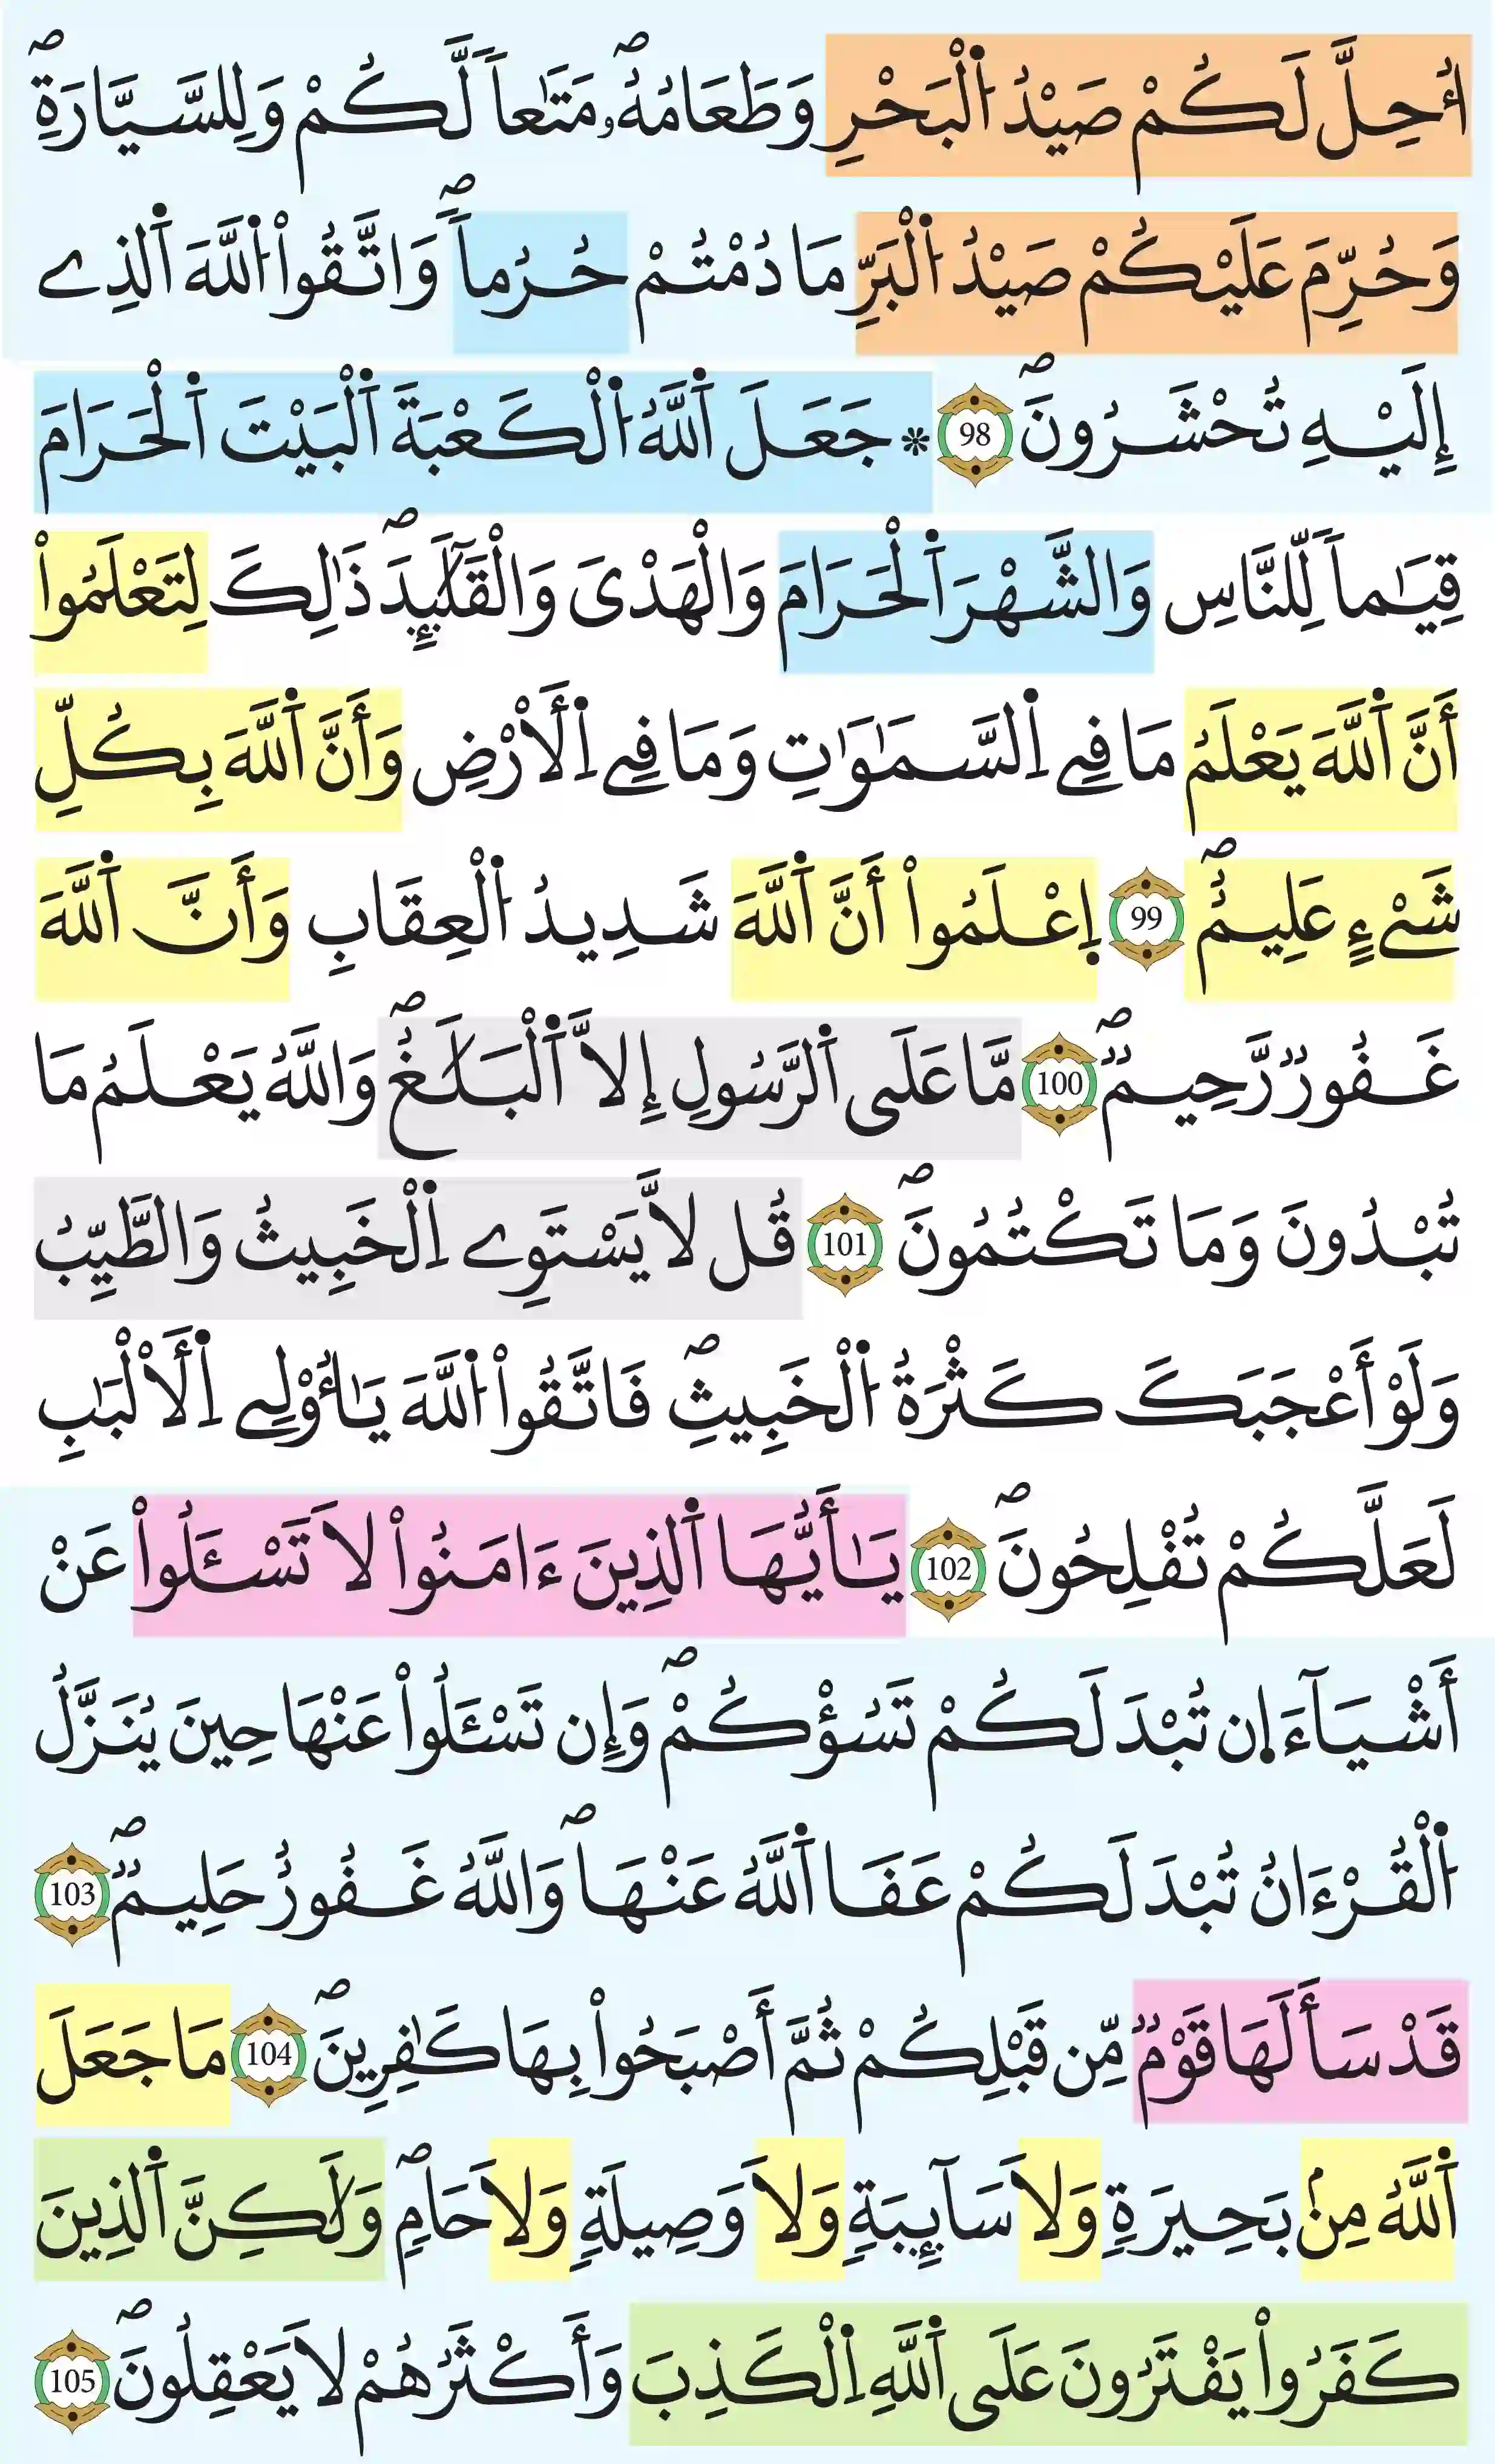 اُ۬حِلَّ لَكُمْ صَيْدُ اُ۬لْبَحْرِ وَطَعَامُهُۥ مَتَٰعاٗ لَّكُمْ وَلِلسَّيَّارَةِۖ
وَحُرِّمَ عَلَيْكُمْ صَيْدُ اُ۬لْبَرِّ مَا دُمْتُمْ حُرُماٗۖ وَاتَّقُواْ اُ۬للَّهَ اَ۬لذِے
إِلَيْهِ تُحْشَرُونَۖ 98 * جَعَلَ اَ۬للَّهُ اُ۬لْكَعْبَةَ اَ۬لْبَيْتَ اَ۬لْحَرَامَ
قِيَٰماٗ لِّلنَّاسِ وَالشَّهْرَ اَ۬لْحَرَامَ وَالْهَدْيَ وَالْقَلَٰٓئِدَۖ ذَٰلِكَ لِتَعْلَمُواْ
أَنَّ اَ۬للَّهَ يَعْلَمُ مَا فِے اِ۬لسَّمَٰوَٰتِ وَمَا فِے اِ۬لَارْضِ وَأَنَّ اَ۬للَّهَ بِكُلِّ
شَےْءٍ عَلِيمٌۖ 99 اِ۪عْلَمُواْ أَنَّ اَ۬للَّهَ شَدِيدُ اُ۬لْعِقَابِ وَأَنَّ اَ۬للَّهَ
غَفُورٞ رَّحِيمٞۖ 100 مَّا عَلَى اَ۬لرَّسُولِ إِلَّا اَ۬لْبَلَٰغُۖ وَاللَّهُ يَعْلَمُ مَا
تُبْدُونَ وَمَا تَكْتُمُونَۖ 101 قُل لَّا يَسْتَوِے اِ۬لْخَبِيثُ وَالطَّيِّبُ
وَلَوْ أَعْجَبَكَ كَثْرَةُ اُ۬لْخَبِيثِۖ فَاتَّقُواْ اُ۬للَّهَ يَٰأُوْلِے اِ۬لَالْبَٰبِ
لَعَلَّكُمْ تُفْلِحُونَۖ 102 يَٰأَيُّهَا اَ۬لذِينَ ءَامَنُواْ لَا تَسْـَٔلُواْ عَنْ
أَشْيَآءَ ا۪ن تُبْدَ لَكُمْ تَسُؤْكُمْۖ وَإِن تَسْـَٔلُواْ عَنْهَا حِينَ يُنَزَّلُ
اُ۬لْقُرْءَانُ تُبْدَ لَكُمْ عَفَا اَ۬للَّهُ عَنْهَاۖ وَاللَّهُ غَفُورٌ حَلِيمٞۖ 103
قَدْ سَأَلَهَا قَوْمٞ مِّن قَبْلِكُمْ ثُمَّ أَصْبَحُواْ بِهَا كَٰفِرِينَۖ 104 مَا جَعَلَ
اَ۬للَّهُ مِنۢ بَحِيرَةٖ وَلَا سَآئِبَةٖ وَلَا وَصِيلَةٖ وَلَا حَامٖۖ وَلَٰكِنَّ اَ۬لذِينَ
كَفَرُواْ يَفْتَرُونَ عَلَى اَ۬للَّهِ اِ۬لْكَذِبَ وَأَكْثَرُهُمْ لَا يَعْقِلُونَۖ 105